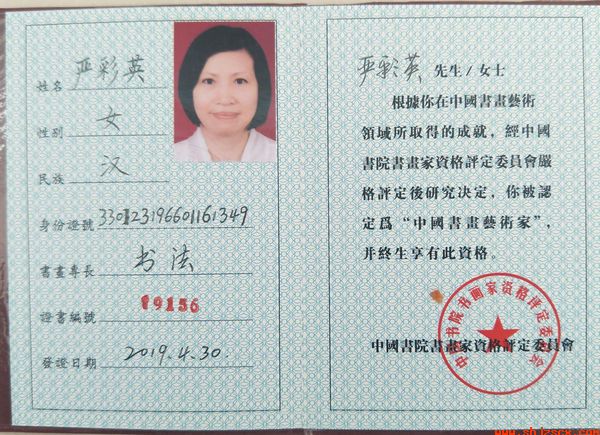 姓名 严彩英
性别 女
民族 汉
身份證號 330123196601161349
書畫專長 书法
證書編號 19156
發證日期 2019.4.30.
严彩英 先生/女士
根據你在中國書畫藝術
領域所取得的成就，經中國
書院書畫家資格評定委員會嚴
格評定後研究決定，你被認
定爲“中國書畫藝術家”，
并終生享有此資格。
中国书院书画家资格评定委员会
中國書院書畫家資格評定委員會
www.shjzscx.com